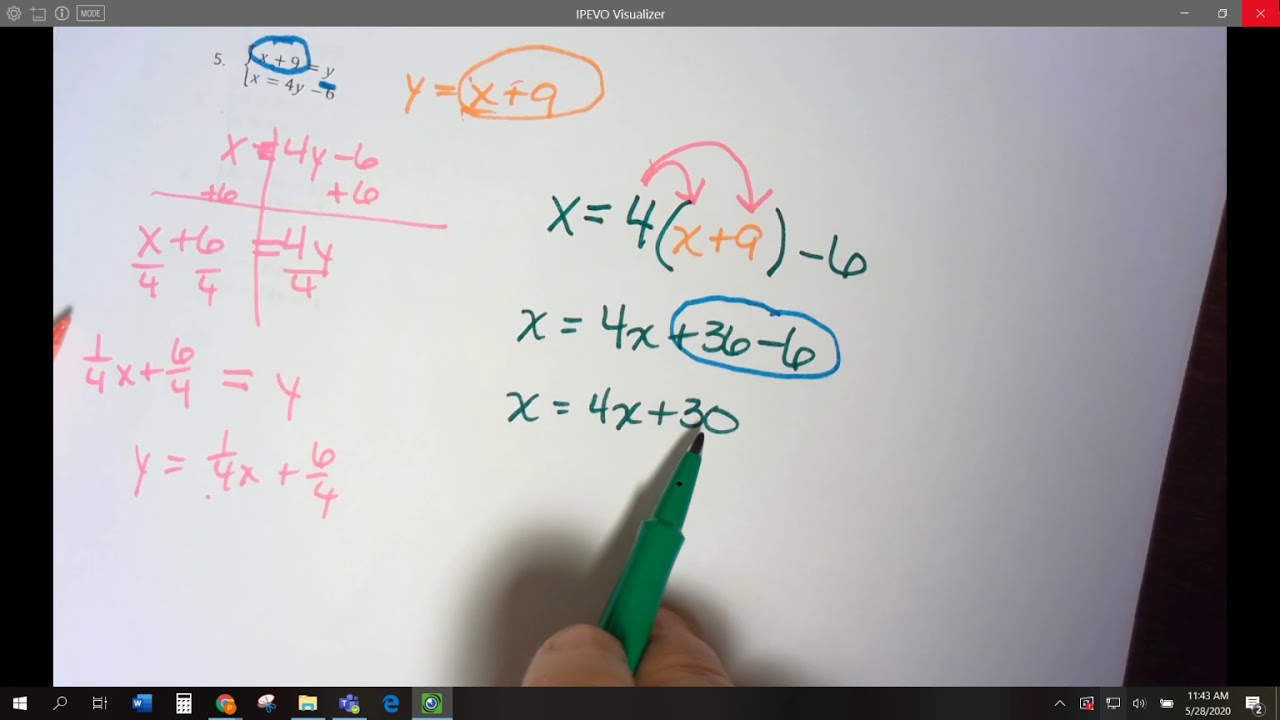 MODE
IPEVO Visualizer
5. x + 9 = y
x = 4y − 6
y = x+9
x = 4y-6
+6 +6
x/4 + 6/4 = 4y/4
1/4 x + 6/4 = y
y = 1/4 x + 6/4
x = 4(x+9) -6
x = 4x +36-6
x = 4x+30
11:43 AM
5/28/2020
2